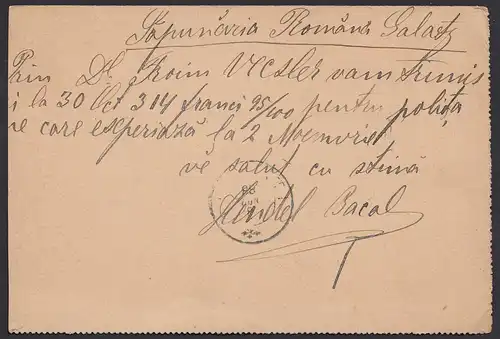 Săpunăria Română Galatz
Prin Dl Froim Vecsler vam trimis
i la 30 Oct 314 franci 95/100 pentru polița
ne care esperiază la 2 Noemvrie
vĕ salut cu stimă
Hendel Bacal